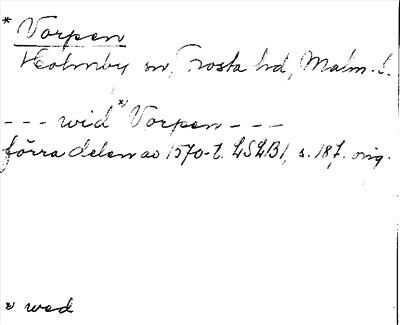 * Vorpen
Holmby sn, Frosta hd, Malm. l.
--- wid * Vorpen ---
förra delen av 1570-t. LSLB1, s. 187. orig.
* wed